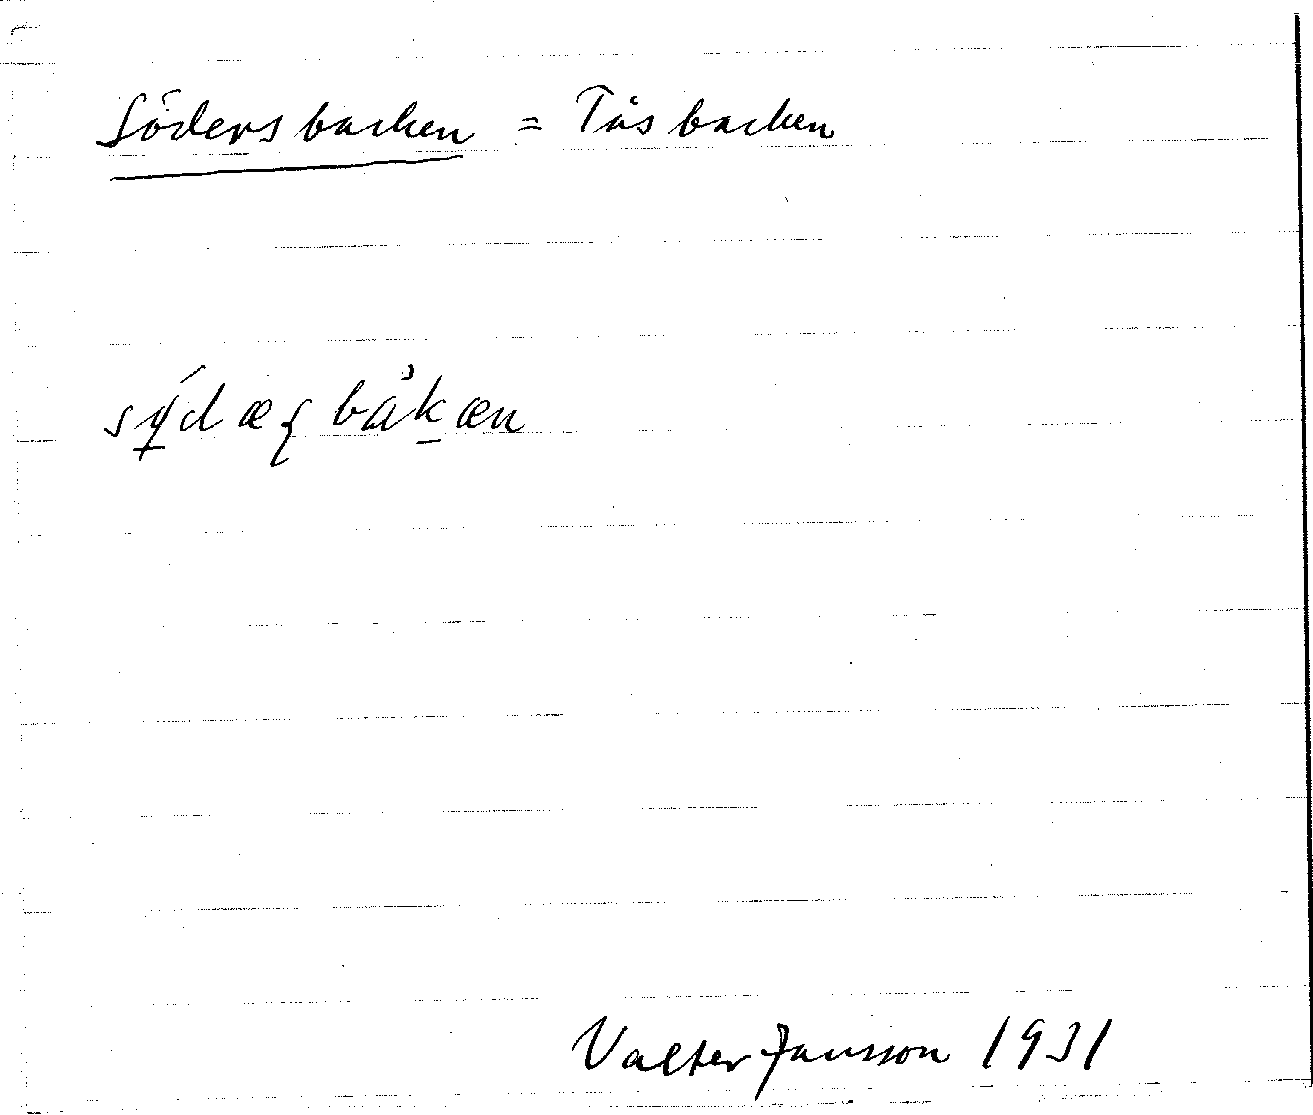 Södersbacken = Tåsbacken
sýdæʂ båkæn
Valter Jansson 1931